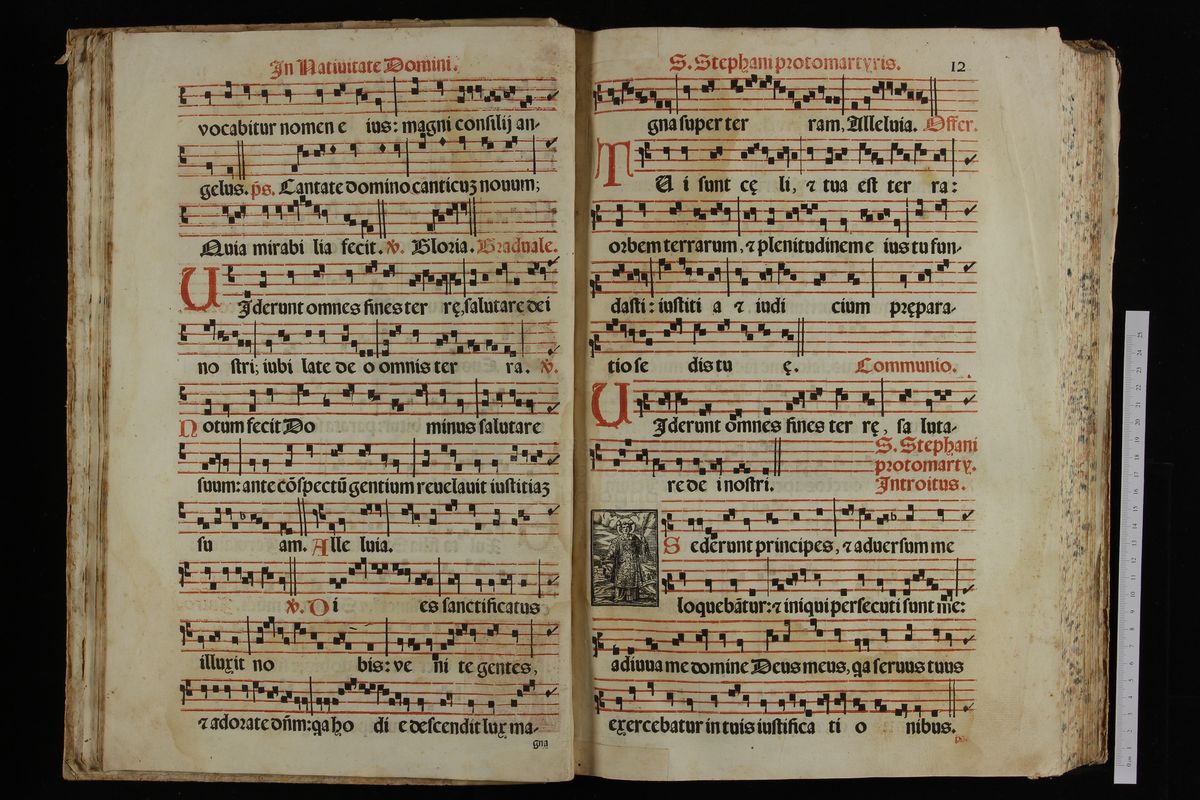 In Natiuitate Domini.
vocabitur nomen e ius: magni consilij an-
gelus. p̄s. Cantate domino canticuꝫ nouum;
Quia mirabi lia fecit. ꝟ. Gloria. Graduale.
UIderunt omnes fines ter rę, salutare dei
no stri; iubi late de o omnis ter ra. ꝟ.
Notum fecit Do minus salutare
suum: ante cōspectū gentium reuelauit iustitiaꝫ
su am. Alle luia.
ꝟ. Di es sanctificatus
illuxit no bis: ve ni te gentes,
⁊ adorate dn̄m: qa ho di e descendit lux ma-
gna
S. Stephani protomartyris. 12
gna super ter ram, Alleluia. Offer.
TU i sunt cę li, ⁊ tua est ter ra:
orbem terrarum, ⁊ plenitudinem e ius tu fun-
dasti: iustiti a ⁊ iudi cium prępara-
tio se dis tu ę. Communio.
UIderunt omnes fines ter rę, sa luta-
re de i nostri.
S. Stephani
protomarty.
Introitus.
Sederunt principes, ⁊ aduersum me
loquebātur: ⁊ iniqui persecuti sunt me:
adiuua me domine Deus meus, qa seruus tuus
exercebatur in tuis iustifica ti o nibus.